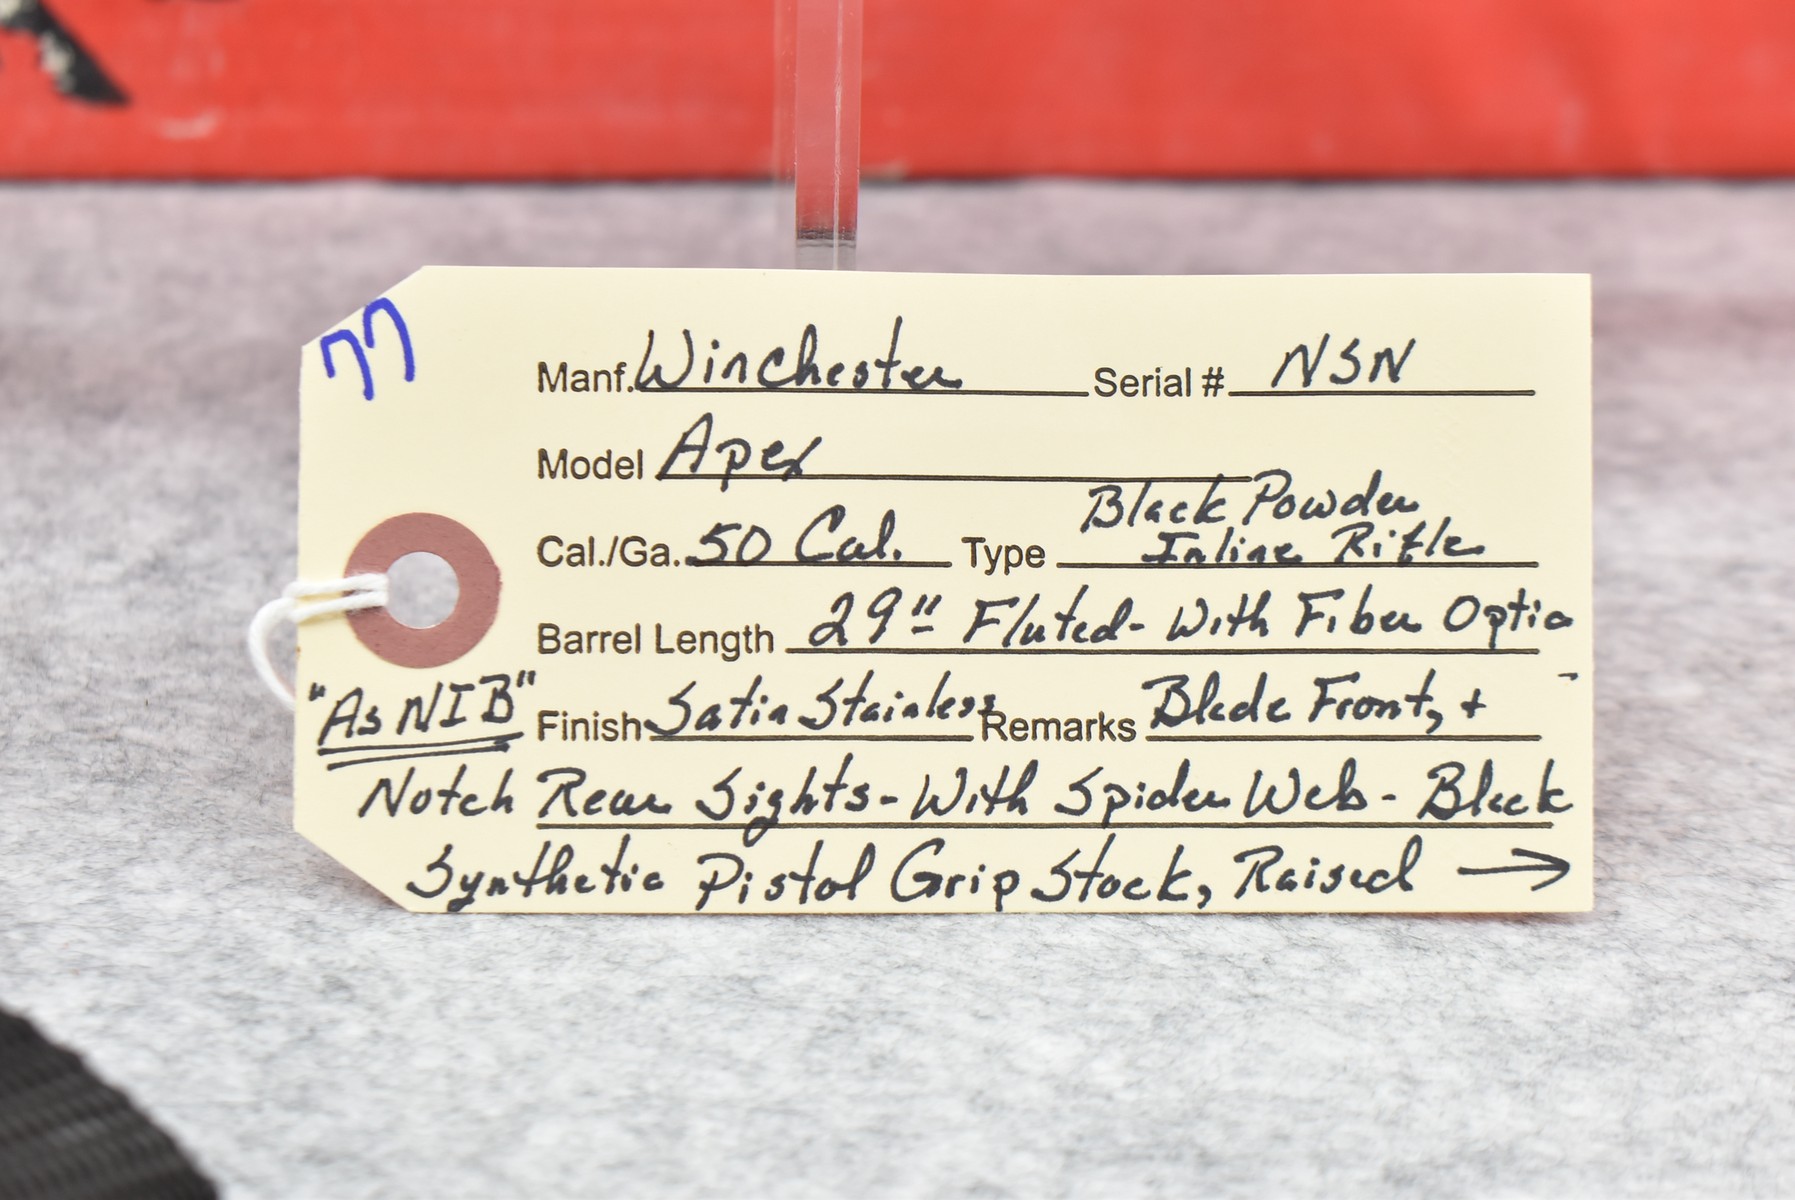 77
Manf. Winchester Serial # NSN
Model Apex
Cal./Ga. 50 Cal. Type Black Powder
Inline Rifle
Barrel Length 29" Fluted - With Fiber Optic
"As NIB" Finish Satin Stainless Remarks Blade Front, +
Notch Rear Sights - With Spider Web - Black
Synthetic Pistol Grip Stock, Raised →